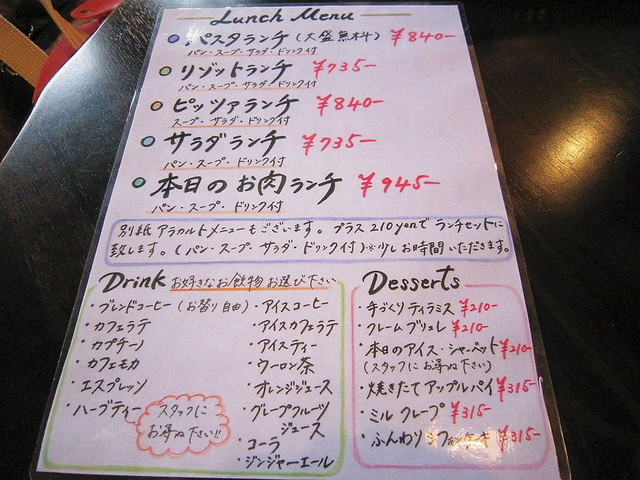 Lunch Menu
パスタランチ (大盛無料) ¥840-
パン・スープ・サラダ・ドリンク付
リゾットランチ ¥735-
パン・スープ・サラダ・ドリンク付
ピッツァランチ ¥840-
スープ・サラダ・ドリンク付
サラダランチ ¥735-
パン・スープ・ドリンク付
本日のお肉ランチ ¥945-
パン・スープ・ドリンク付
別紙アラカルトメニューもございます。プラス210yenでランチセットに
致します。(パン・スープ・サラダ・ドリンク付)※少しお時間いただきます。
Drink お好きなお飲物お選び下さい
・ブレンドコーヒー (お替り自由)
・カフェラテ
・カプチーノ
・カフェモカ
・エスプレッソ
・ハーブティー
スタッフに
お尋ね下さい!!
・アイスコーヒー
・アイスカフェラテ
・アイスティー
・ウーロン茶
・オレンジジュース
・グレープフルーツ
ジュース
・コーラ
・ジンジャーエール
Desserts
・手づくりティラミス ¥210-
・クレームブリュレ ¥210-
・本日のアイス・シャーベット ¥210-
(スタッフにお尋ね下さい)
・焼きたてアップルパイ ¥315-
・ミルクレープ ¥315-
・ふんわりシフォンケーキ ¥315-